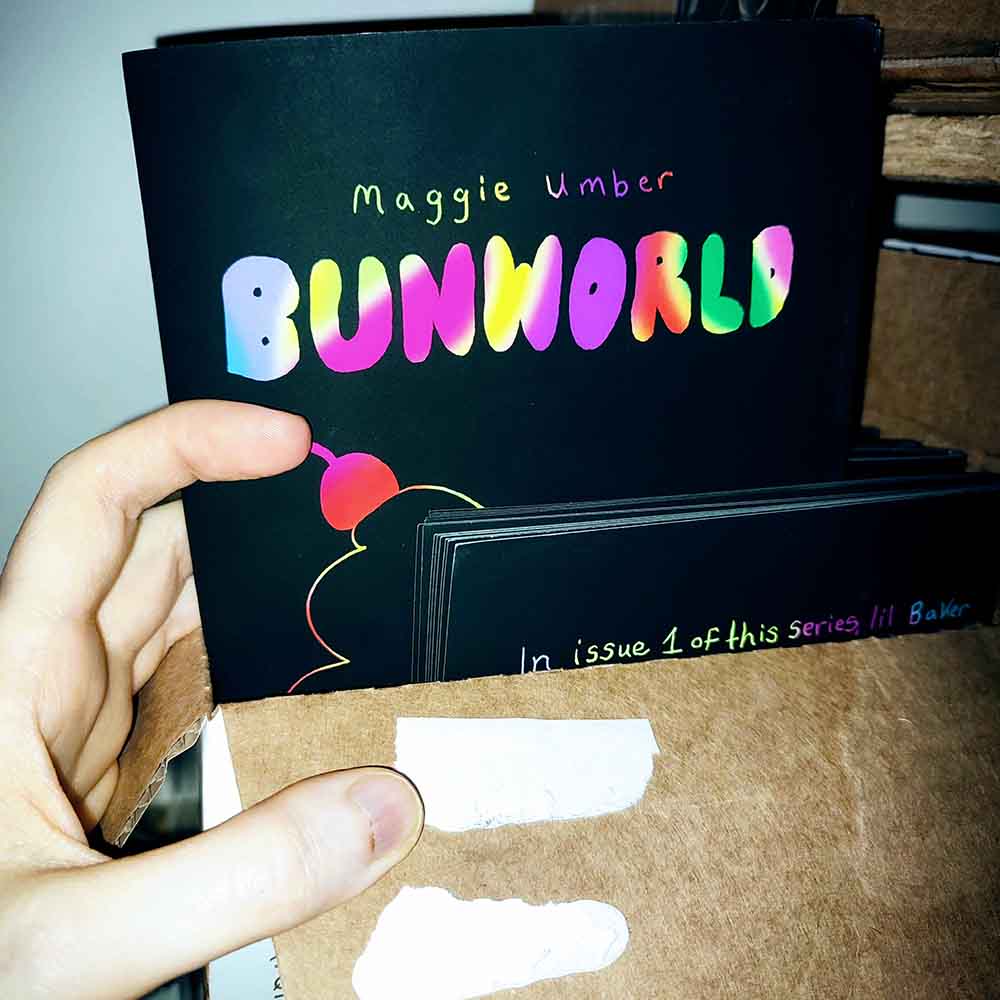 Maggie Umber
BUNWORLD
In issue 1 of this series, lil Baker